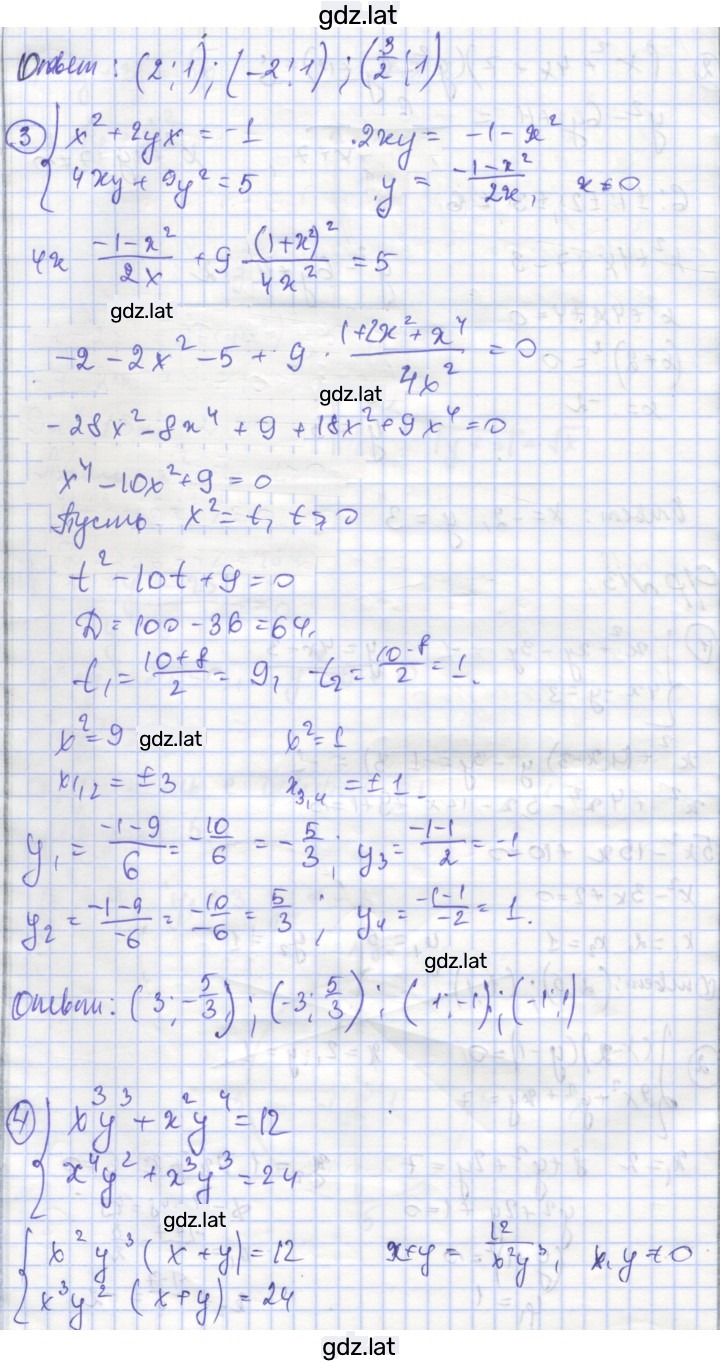 gdz.lat
Ответ: (2; 1); (-2; 1); (3/2; 1)
③ { x² + 2yx = -1     2xy = -1 - x²
{ 4xy + 9y² = 5     y = (-1-x²)/(2x), x ≠ 0
4x (-1-x²)/(2x) + 9 (1+x²)²/(4x²) = 5
gdz.lat
-2 - 2x² - 5 + 9 · (1+2x²+x⁴)/(4x²) = 0
gdz.lat
-28x² - 8x⁴ + 9 + 18x² + 9x⁴ = 0
x⁴ - 10x² + 9 = 0
Пусть x² = t, t ⩾ 0
t² - 10t + 9 = 0
D = 100 - 36 = 64.
t₁ = (10+8)/2 = 9, t₂ = (10-8)/2 = 1.
x² = 9     x² = 1
gdz.lat
x₁,₂ = ±3     x₃,₄ = ±1.
y₁ = (-1-9)/6 = -10/6 = -5/3; y₃ = (-1-1)/2 = -1
y₂ = (-1-9)/(-6) = (-10)/(-6) = 5/3; y₄ = (-1-1)/(-2) = 1.
gdz.lat
Ответ: (3; -5/3); (-3; 5/3); (1; -1); (-1; 1)
④ { x³y³ + x²y⁴ = 12
{ x⁴y² + x³y³ = 24
gdz.lat
{ x²y³ (x+y) = 12     x+y = 12/(x²y³), x, y ≠ 0
{ x³y² (x+y) = 24
gdz.lat